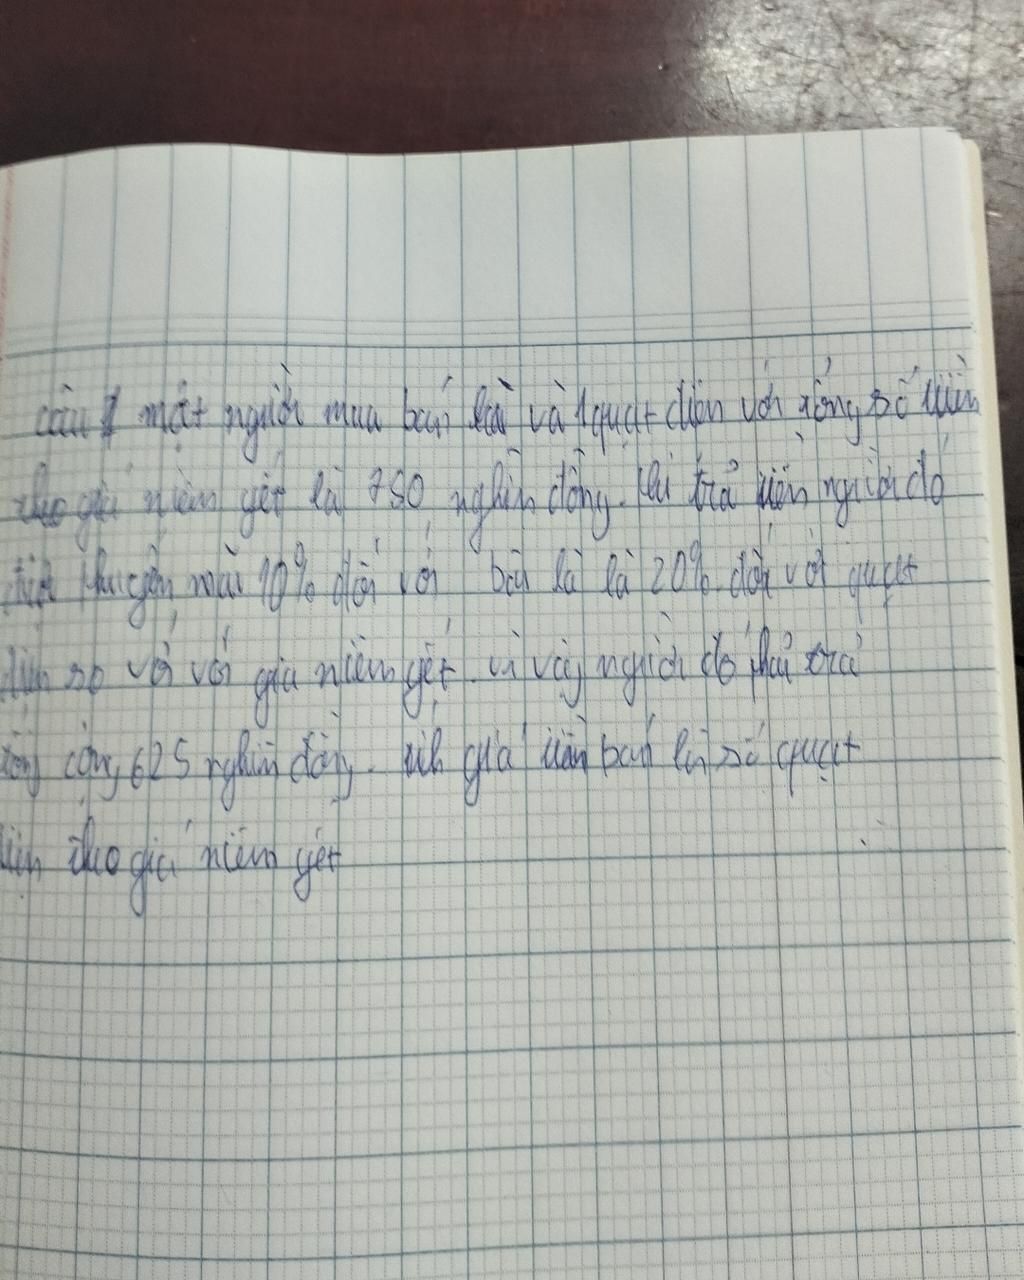 câu 1 một người mua bàn là và 1 quạt điện với tổng số tiền
theo giá niêm yết là 750 nghìn đồng. khi trả tiền người đó
khuyến mãi 10% đối với bàn là là 20% đối với quạt
điện so với với giá niêm yết. vì vậy người đó phải trả
tổng cộng 625 nghìn đồng. tính giá tiền bàn là số quạt
điện theo giá niêm yết